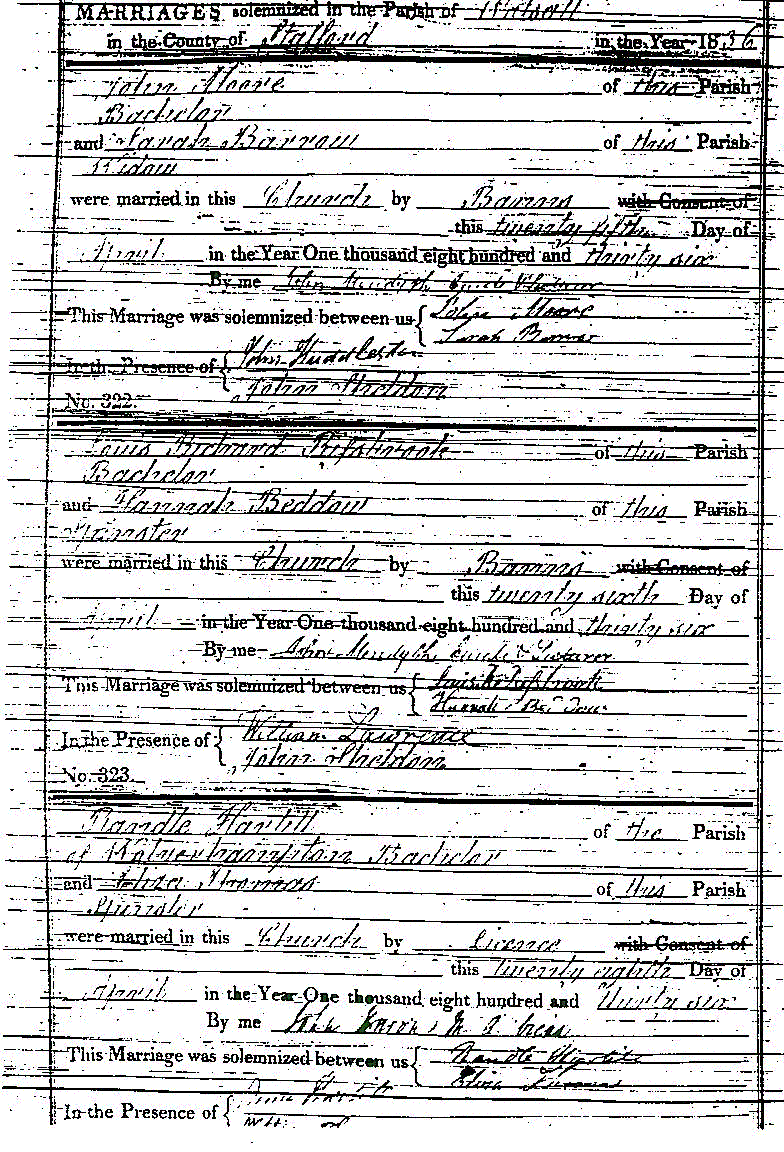 MARRIAGES solemnized in the Parish of Walsall
in the County of Stafford in the Year 1836
John Moore of this Parish
Bachelor
and Sarah Barrow of this Parish
Widow
were married in this Church by Banns with Consent of
this twenty fifth Day of
April in the Year One thousand eight hundred and thirty six
By me John
This Marriage was solemnized between us { John Moore
Sarah Barrow
In the Presence of { John Huddlestone
John Sheldon
No. 322.
Louis Richard of this Parish
Bachelor
and Hannah Beddow of this Parish
Spinster
were married in this Church by Banns with Consent of
this twenty sixth Day of
April in the Year One thousand eight hundred and thirty six
By me John
This Marriage was solemnized between us {
Hannah Beddow
In the Presence of { William Lawrence
John Sheldon
No. 323.
Randle Hartill of the Parish
of Wolverhampton Bachelor
and Eliza Thomas of this Parish
Spinster
were married in this Church by Licence with Consent of
this twenty eighth Day of
April in the Year One thousand eight hundred and thirty six
By me John
This Marriage was solemnized between us { Randle Hartill
Eliza Thomas
In the Presence of { Hartill